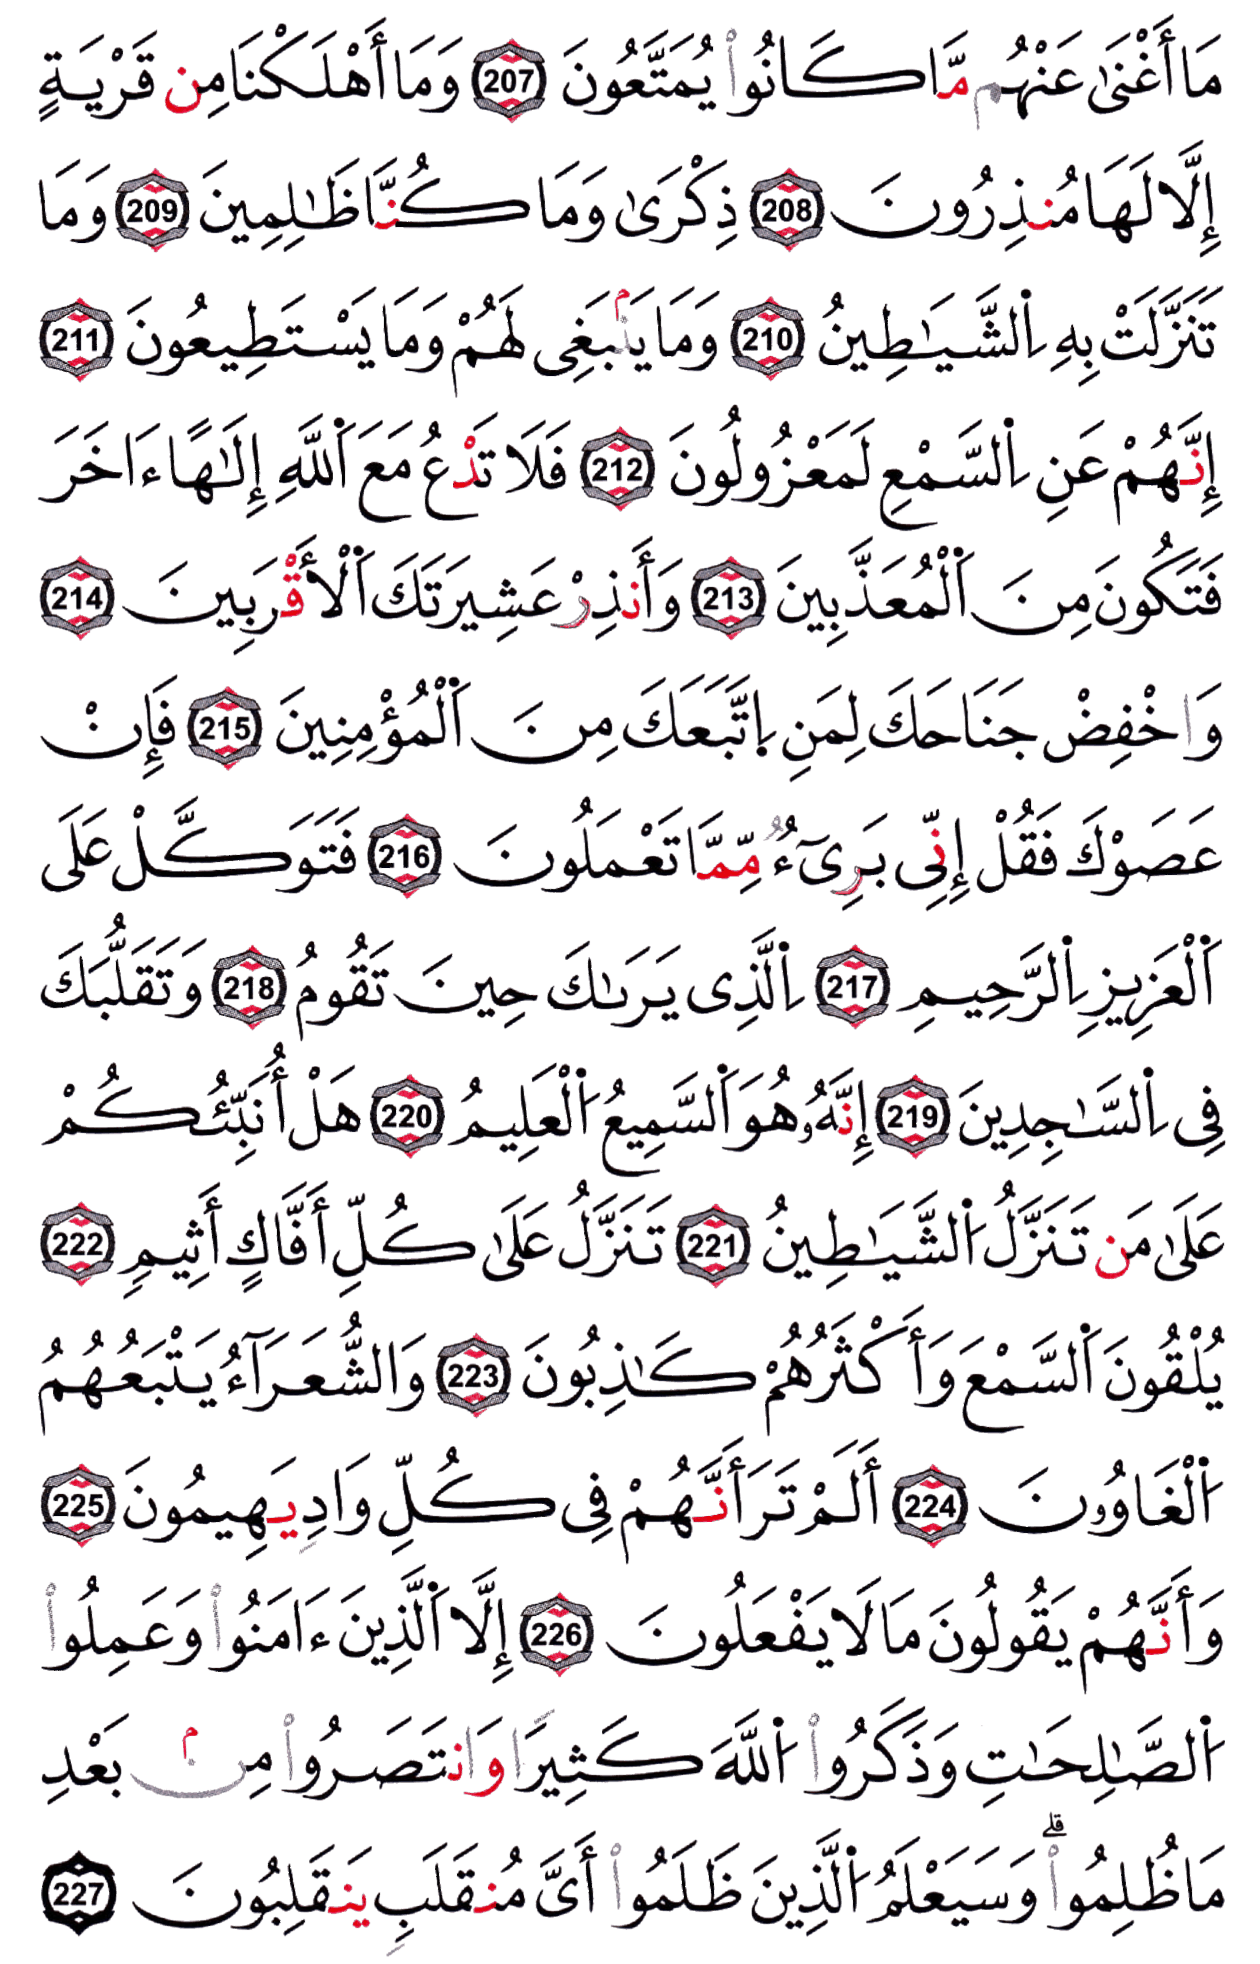 مَا أَغْنَىٰ عَنْهُم مَّا كَانُوا۟ يُمَتَّعُونَ 207 وَمَا أَهْلَكْنَا مِن قَرْيَةٍ
إِلَّا لَهَا مُنذِرُونَ 208 ذِكْرَىٰ وَمَا كُنَّا ظَـٰلِمِينَ 209 وَمَا
تَنَزَّلَتْ بِهِ اِ۬لشَّيَـٰطِينُ 210 وَمَا يَنۢبَغِى لَهُمْ وَمَا يَسْتَطِيعُونَ 211
إِنَّهُمْ عَنِ اِ۬لسَّمْعِ لَمَعْزُولُونَ 212 فَلَا تَدْعُ مَعَ اَ۬للَّهِ إِلَـٰهًا ءَاخَرَ
فَتَكُونَ مِنَ اَ۬لْمُعَذَّبِينَ 213 وَأَنذِرْ عَشِيرَتَكَ اَ۬لْأَقْرَبِينَ 214
وَاخْفِضْ جَنَاحَكَ لِمَنِ اِ۪تَّبَعَكَ مِنَ اَ۬لْمُؤْمِنِينَ 215 فَإِنْ
عَصَوْكَ فَقُلْ إِنِّى بَرِىٓءٌ مِّمَّا تَعْمَلُونَ 216 فَتَوَكَّلْ عَلَى
اَ۬لْعَزِيزِ اِ۬لرَّحِيمِ 217 اِ۬لَّذِى يَرَىٰكَ حِينَ تَقُومُ 218 وَتَقَلُّبَكَ
فِى اِ۬لسَّـٰجِدِينَ 219 إِنَّهُۥ هُوَ اَ۬لسَّمِيعُ اُ۬لْعَلِيمُ 220 هَلْ أُنَبِّئُكُمْ
عَلَىٰ مَن تَنَزَّلُ اُ۬لشَّيَـٰطِينُ 221 تَنَزَّلُ عَلَىٰ كُلِّ أَفَّاكٍ أَثِيمٍ 222
يُلْقُونَ اَ۬لسَّمْعَ وَأَكْثَرُهُمْ كَـٰذِبُونَ 223 وَالشُّعَرَآءُ يَتْبَعُهُمُ
اُ۬لْغَاوُۥنَ 224 أَلَمْ تَرَ أَنَّهُمْ فِى كُلِّ وَادٍ يَهِيمُونَ 225
وَأَنَّهُمْ يَقُولُونَ مَا لَا يَفْعَلُونَ 226 إِلَّا اَ۬لَّذِينَ ءَامَنُوا۟ وَعَمِلُوا۟
اُ۬لصَّـٰلِحَـٰتِ وَذَكَرُوا۟ اُ۬للَّهَ كَثِيرًا وَانتَصَرُوا۟ مِنۢ بَعْدِ
مَا ظُلِمُوا۟ۗ وَسَيَعْلَمُ اُ۬لَّذِينَ ظَلَمُوا۟ أَىَّ مُنقَلَبٍ يَنقَلِبُونَ 227